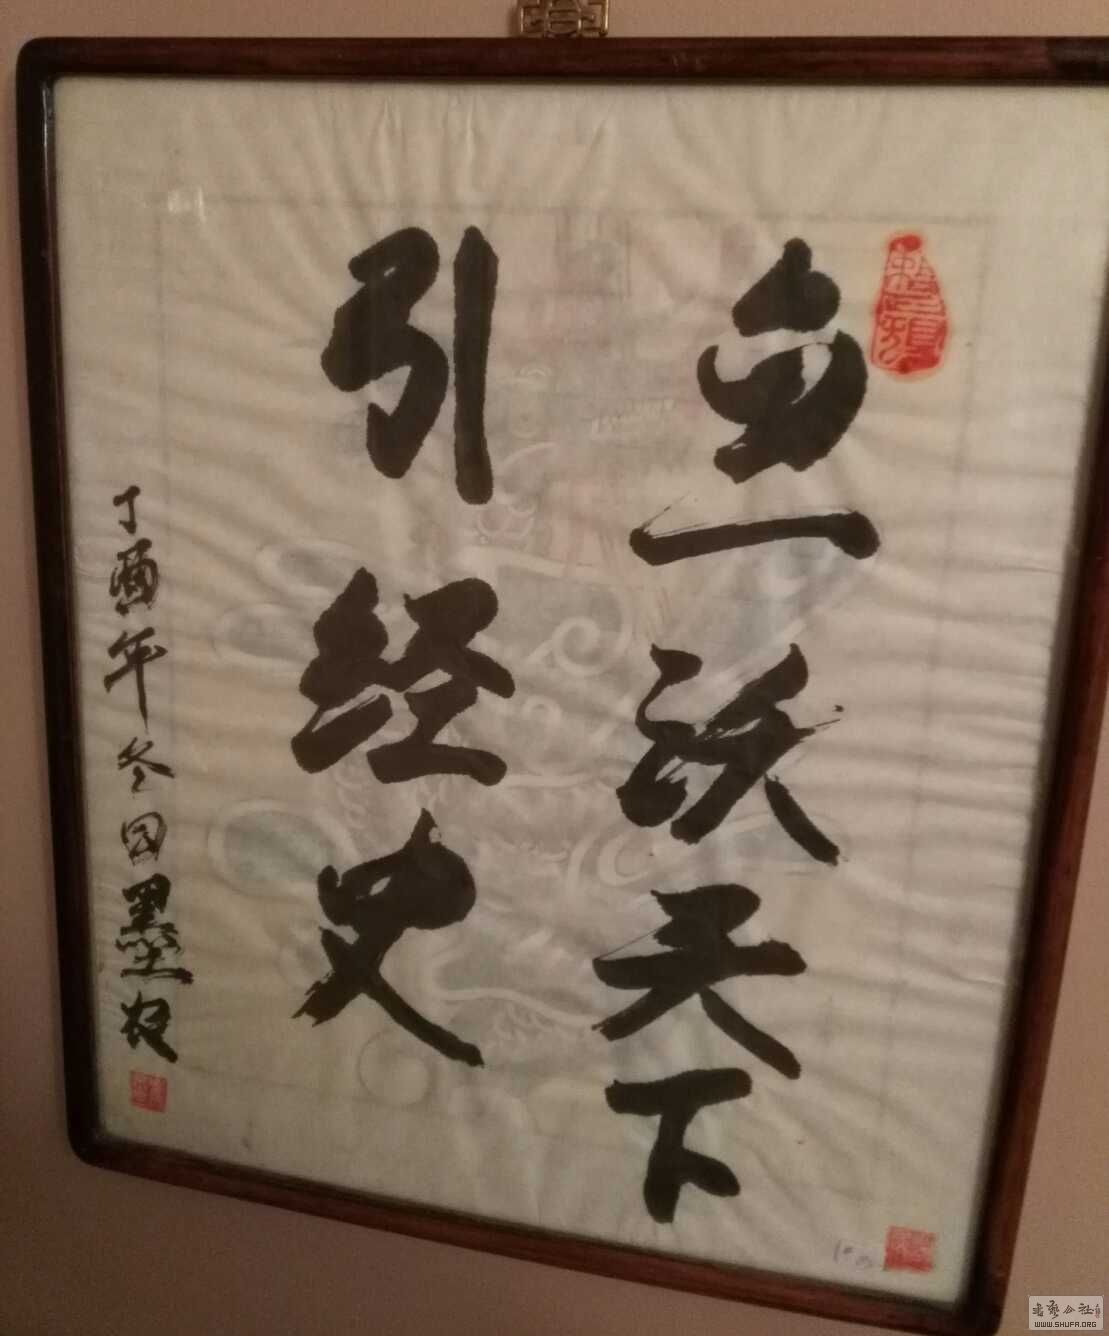 鱼沃天下
引经史
丁酉年冬日墨
书艺公社
WWW.SHUFA.ORG